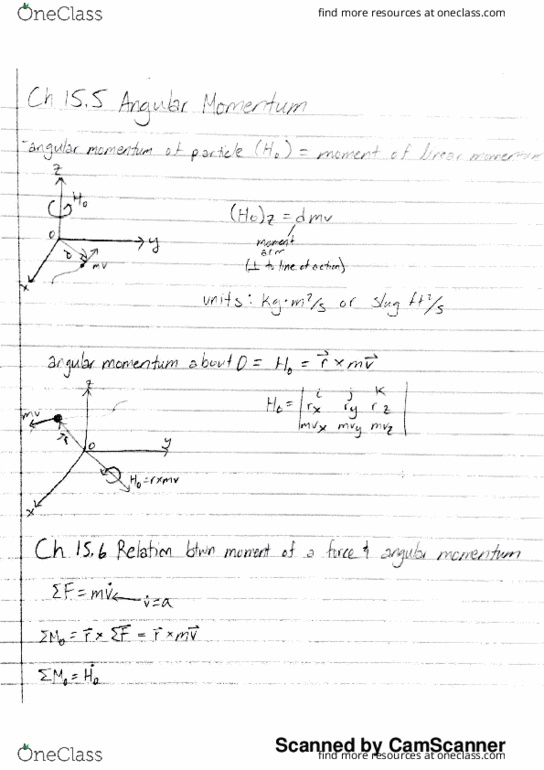 OneClass
find more resources at oneclass.com
Ch 15.5 Angular Momentum
-angular momentum of particle (H₀) = moment of linear momentum
z
H₀
(H₀)z = dmv
O
y
moment
arm
d
mv
(⊥ to line of action)
x
units: kg·m²/s or slug ft²/s
angular momentum about O = H₀ = r⃗ × mv⃗
z
H₀ = | i j k |
| rx ry rz |
| mvx mvy mvz |
mv
r
O
y
H₀=r×mv
x
Ch 15.6 Relation btwn moment of a force & angular momentum
ΣF = mv̇ ← v̇=a
ΣM₀ = r⃗ × ΣF⃗ = r⃗ × mv⃗
ΣM₀ = Ḣ₀
Scanned by CamScanner
OneClass
find more resources at oneclass.com